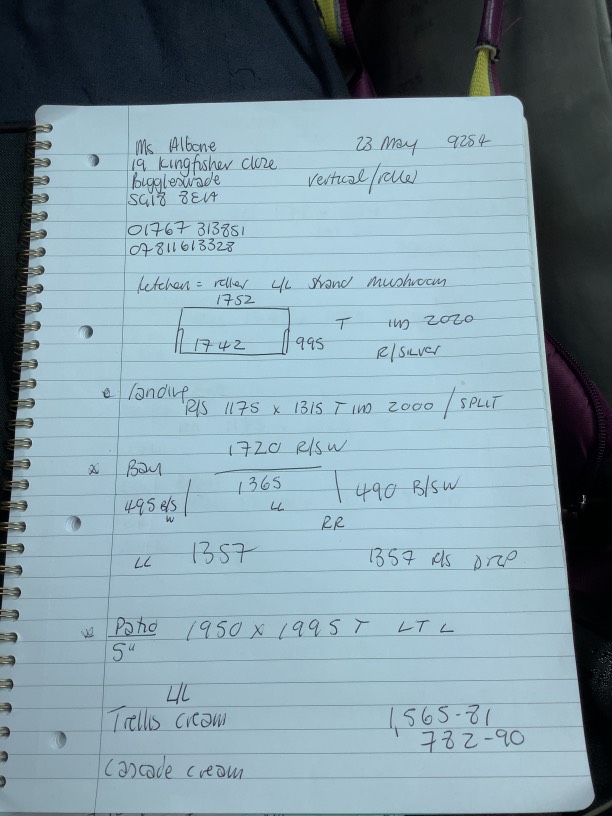 Ms Albone 23 May 9284
19 Kingfisher Close
Biggleswade vertical/roller
SG18 8EU
01767 313851
07811613328
kitchen = roller L/L strand mushroom
1752
1742 995 T IND 2020
R/SILVER
Landing
R/S 1175 x 1315 T IND 2000 / SPLIT
1720 R/SW
Bay
1365
495 R/S 490 B/SW
W LL
RR
LL 1357 1357 R/S DROP
Patio 1950 x 1995 T LTL
5"
L/L
Trellis cream 1,565-81
782-90
Cascade cream